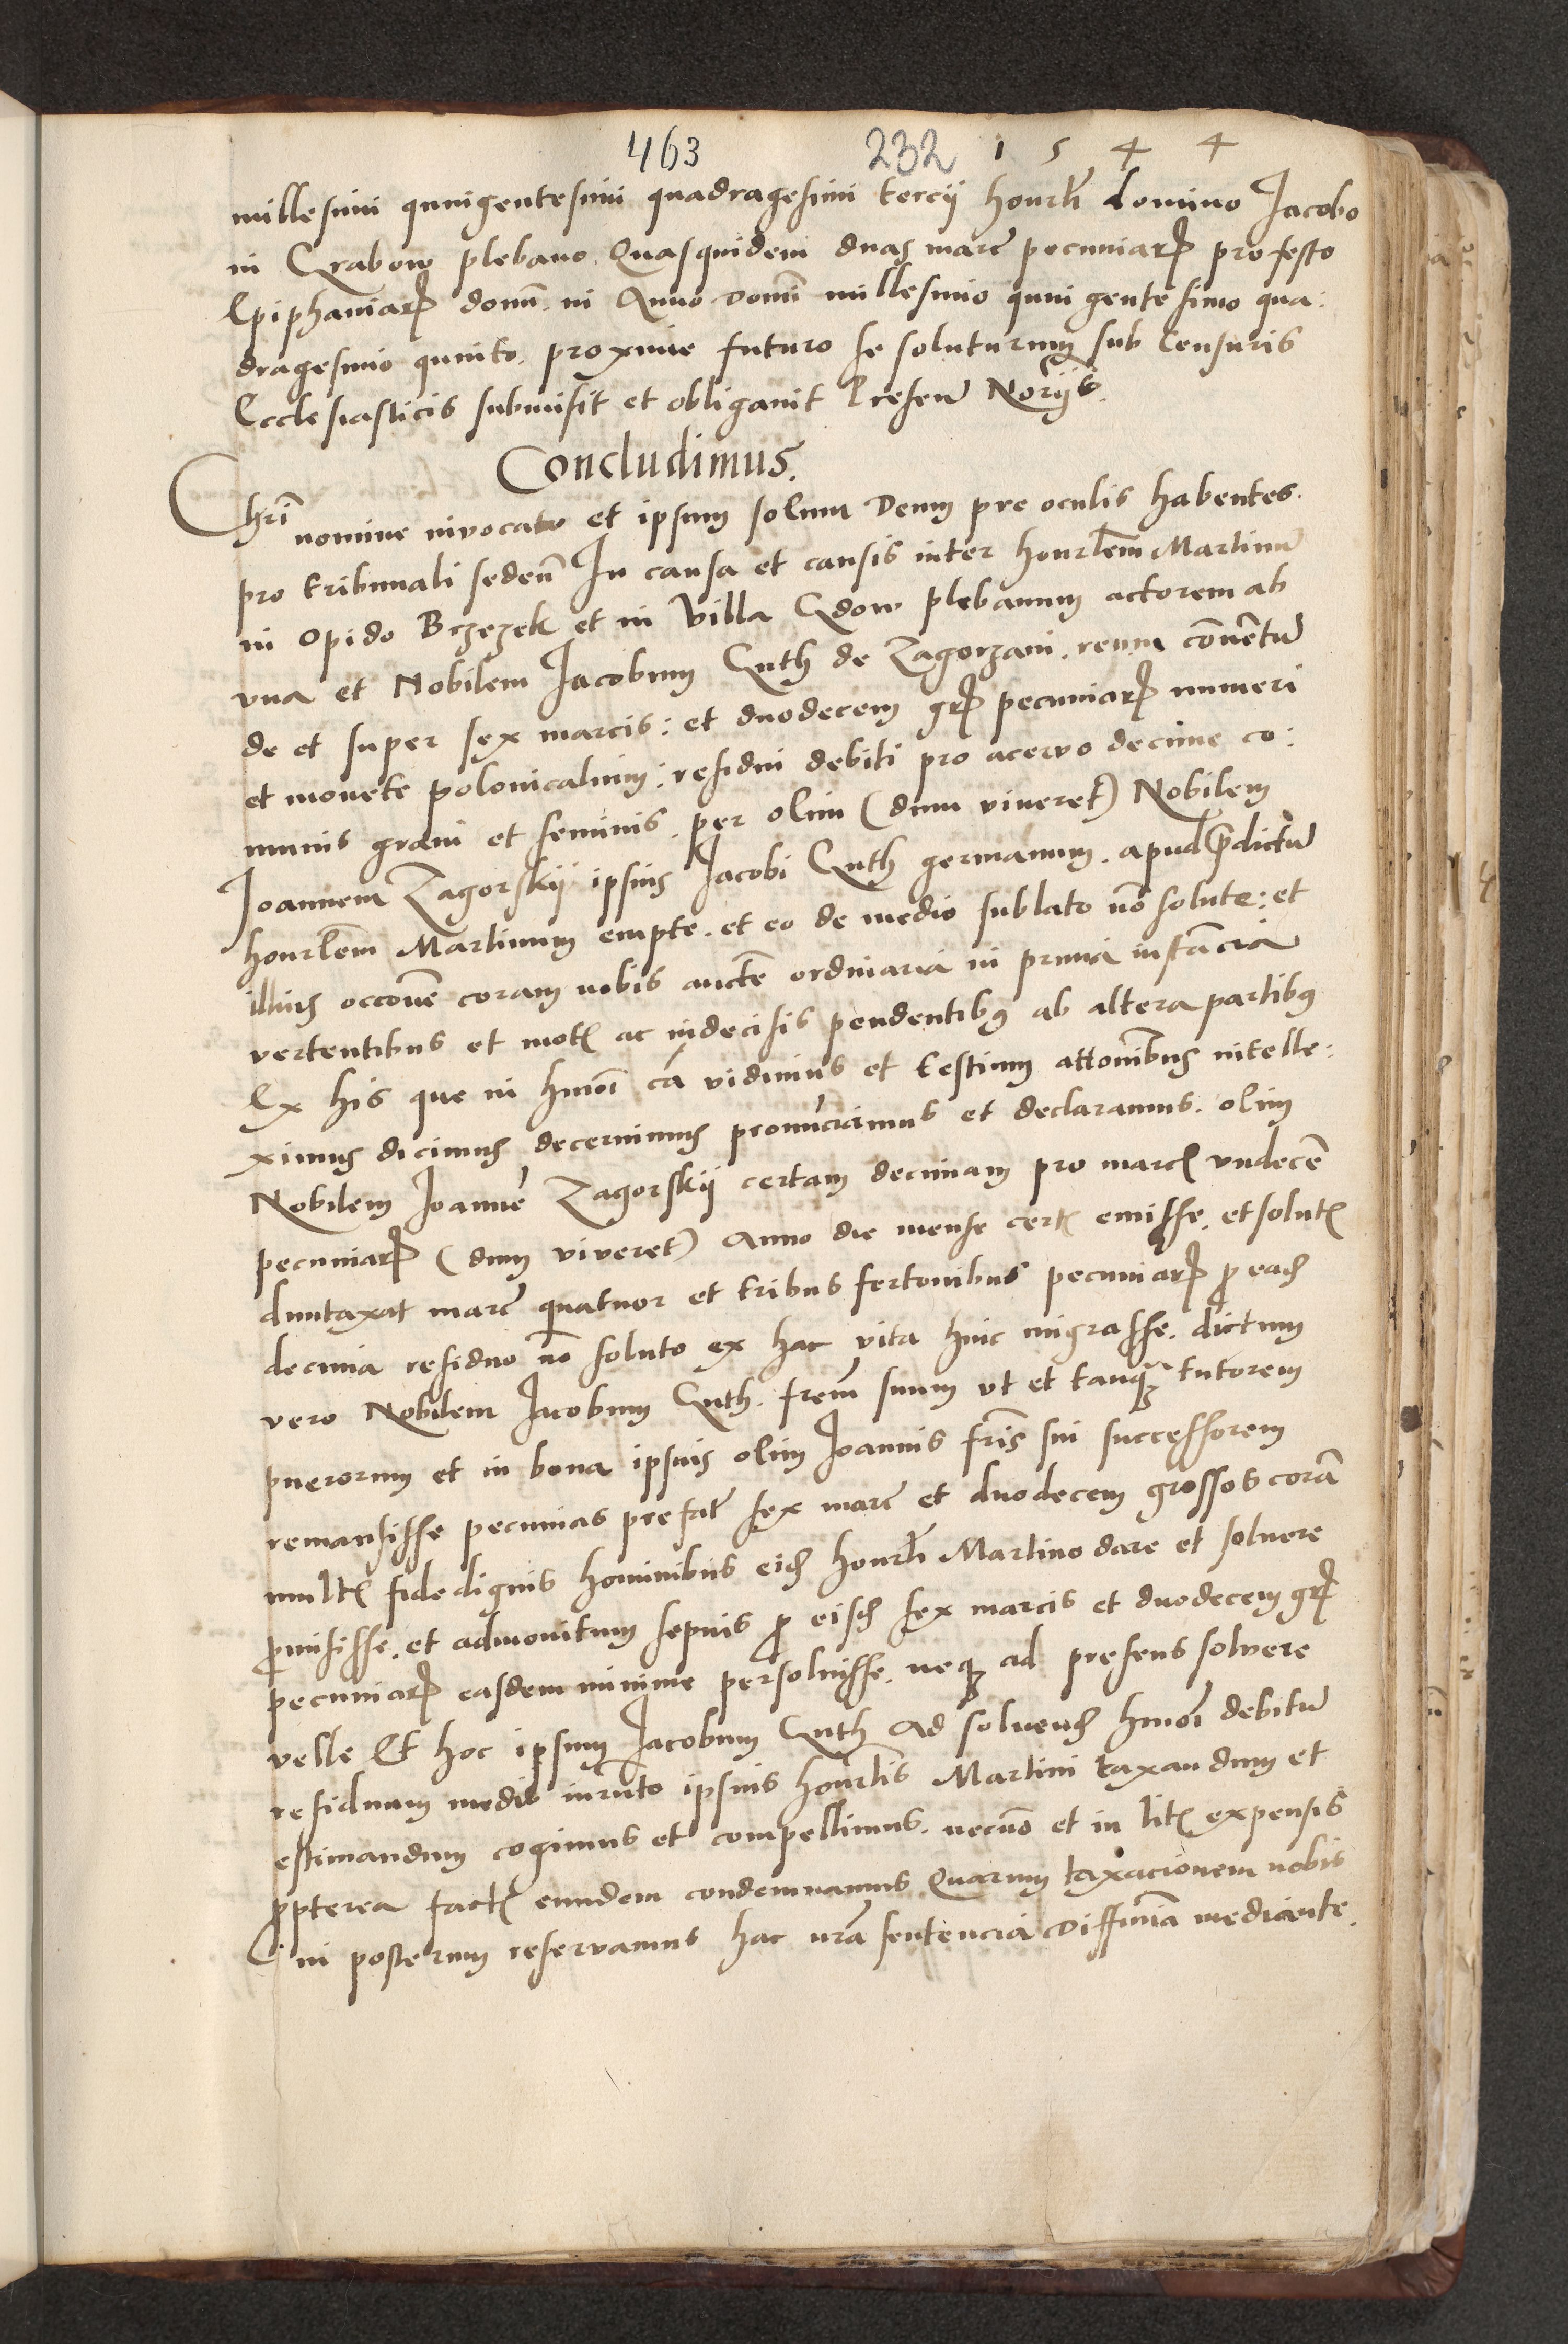 463 232 1 5 4 4
millesimi quingentesimi quadragesimi tercij honrli domino Jacobo
in Grabow plebano. Quasquidem duas marc pecuniar pro festo
Epiphaniar domi. in Anno domi millesimo quingentesimo qua:
dragesimo quinto. proxime futuro se soluturum sub Censuris
Ecclesiasticis submisit et obligauit Presen Norijs.
Concludimus.
Chri nomine invocato et ipsum solum Deum pre oculis habentes.
pro tribunali seden In causa et causis inter honrlem Martinu
in Opido Brzezek et in Villa Gdow plebanum actorem ab
vna et Nobilem Jacobum Guth de Zagorzani. reum conuentu
de et super sex marcis: et duodecem gr pecuniar numeri
et monete polonicalium: residui debiti pro acervo decime co:
munis grani et seminis. per olim (dum viueret) Nobilem
Joannem Zagorskij ipsius Jacobi Guth germanum. apud predictu
honrlem Martinum empte. et eo de medio sublato no solute: et
illius occone coram nobis aucte ordinaria in prima instacia
vertentibus et mot ac indecisis pendentibus ab altera partibus
Ex his que in hmoi ca vidimus et testium attonibus intelle:
ximus dicimus decernimus pronunciamus et declaramus. olim
Nobilem Joanne Zagorskij certam decimam pro marc vndece
pecuniar (dum viveret) Anno die mense cert emisse. et solut
duntaxat marc quatuor et tribus fertonibus pecuniar pro ead
decima residuo no soluto ex hac vita huic migrasse. dictum
vero Nobilem Jacobum Guth. frem suum vt et tanq tutorem
puerorum et in bona ipsius olim Joannis fris sui successorem
remansisse pecunias prefat sex marc et duodecem grossos cora
mult fidedignis hominibus eid honrli Martino dare et soluere
promisisse. et admonitum sepius pro eisd sex marcis et duodecem gr
pecuniar easdem minime persoluisse. neq ad presens solvere
velle Et hoc ipsum Jacobum Guth Ad soluend hmoi debitu
residuum medio iurnto ipsius honrlis Martini taxandum et
estimandum cogimus et compellimus. necno et in lit expensis
propterea fact eundem condemnamus Quarum taxacionem nobis
in posterum reservamus hac nra sentencia Diffinia mediante.